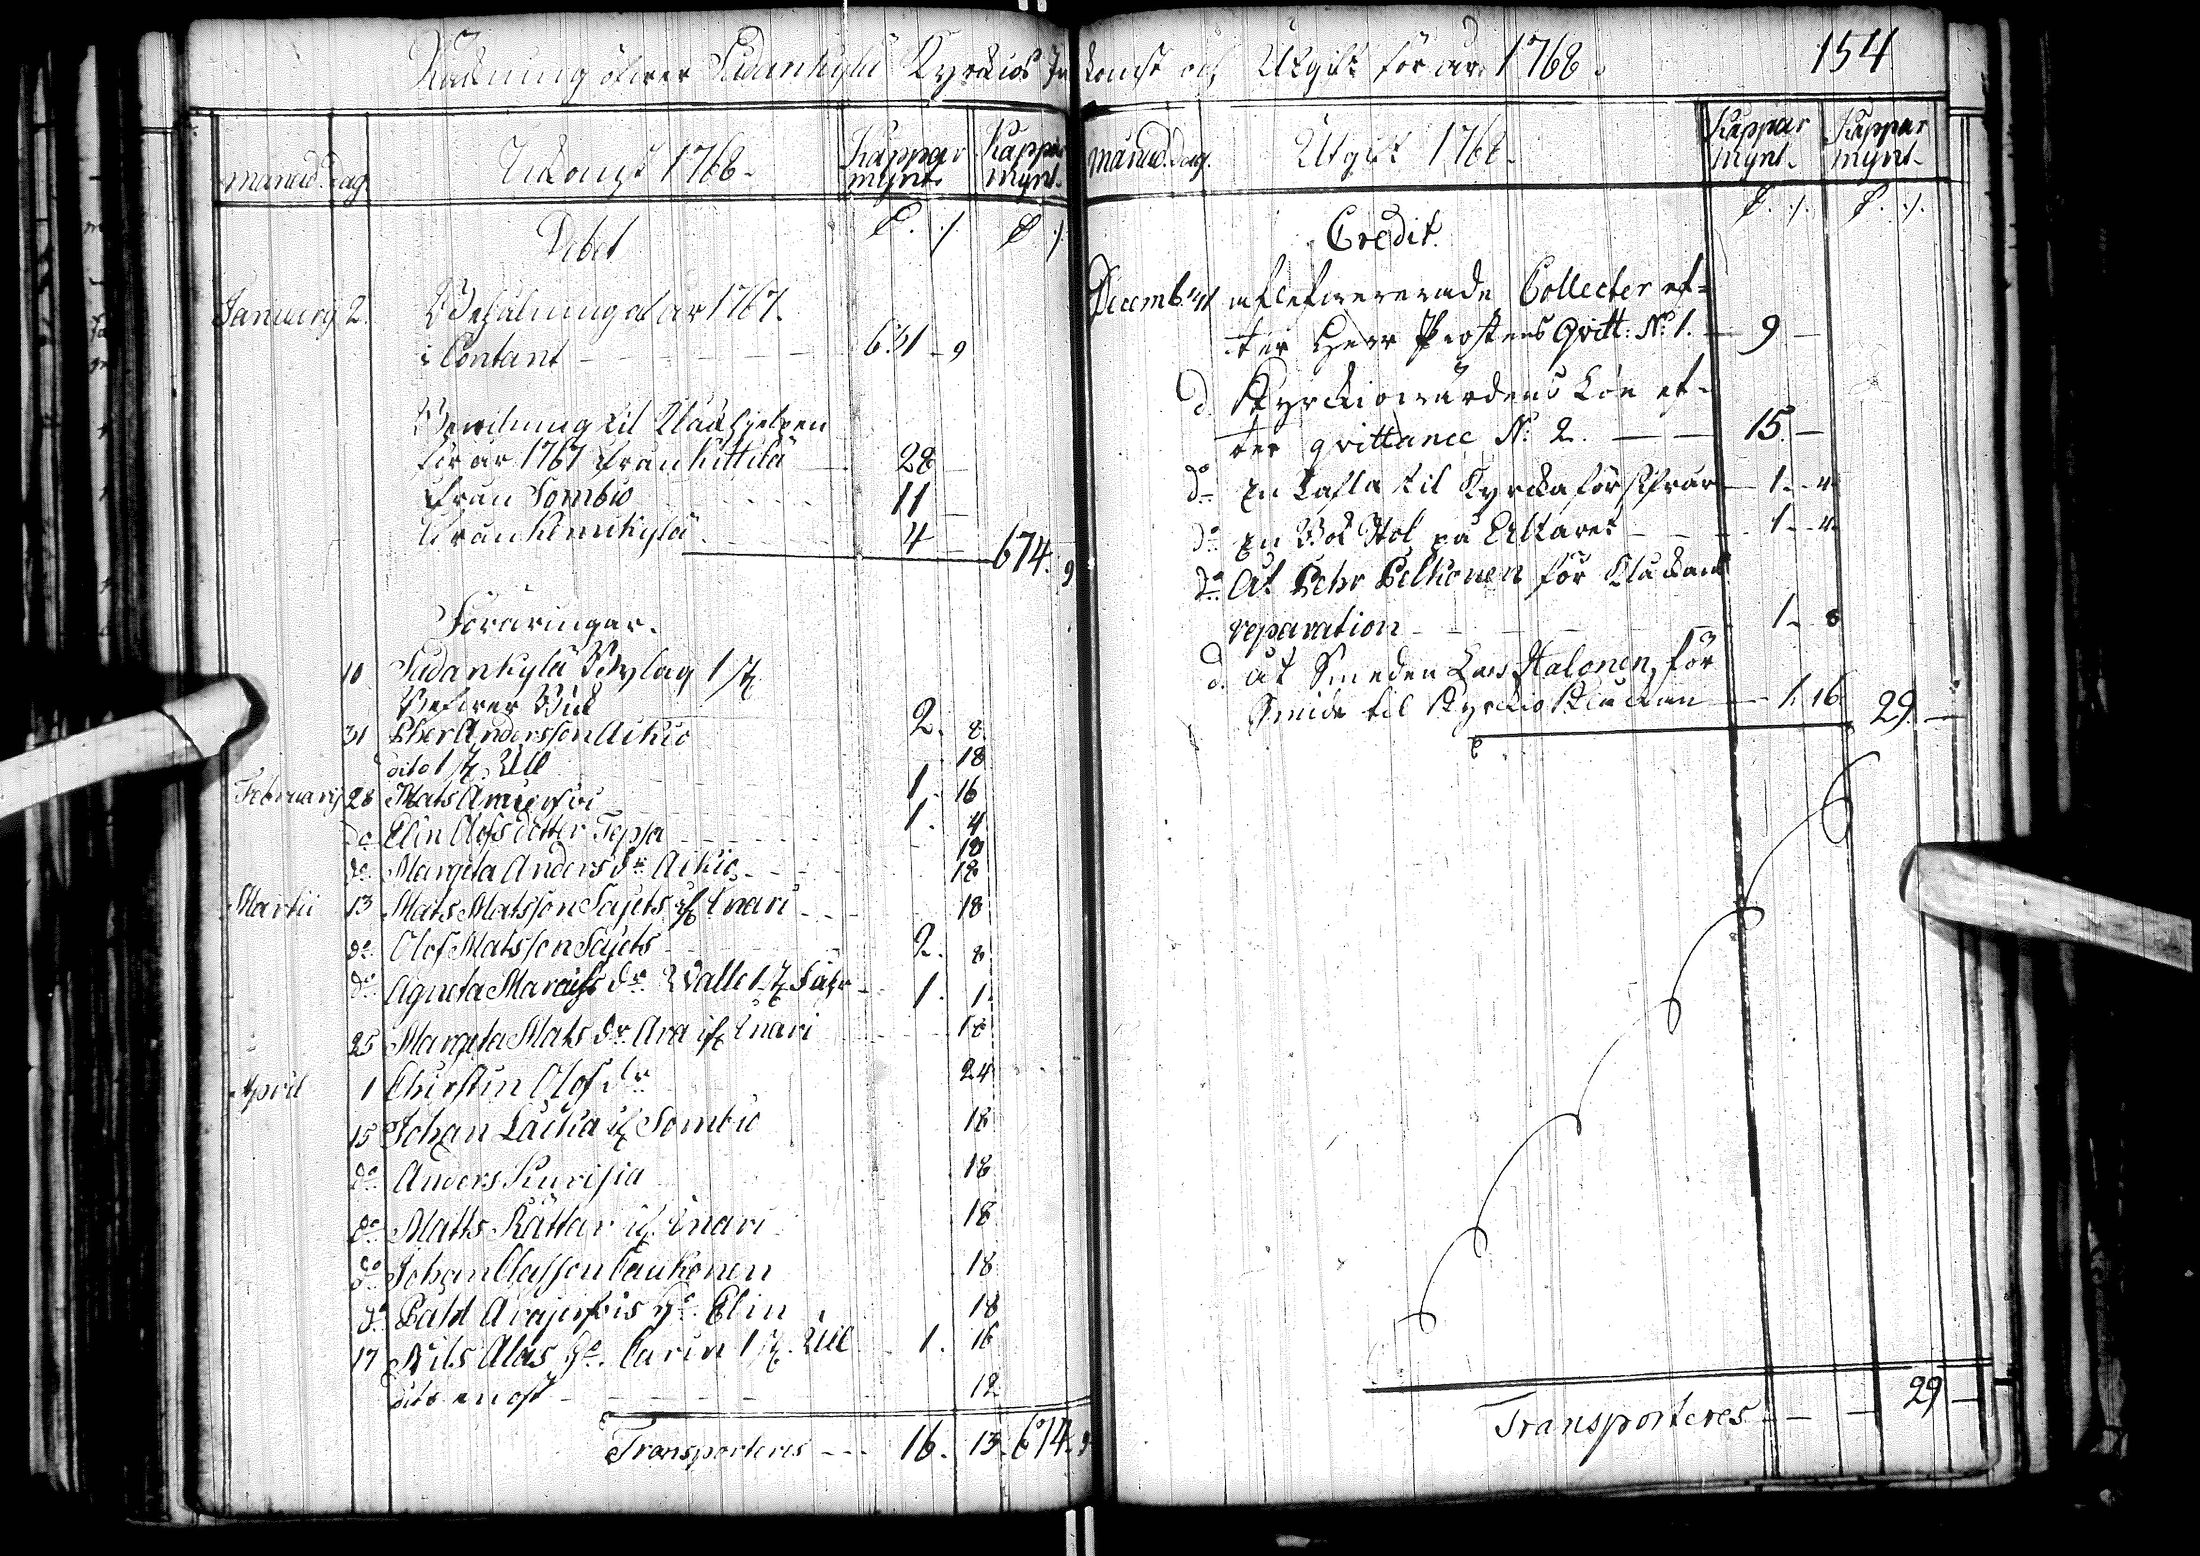 Räkning öfwer Sudankylä Kyrckios Inkomst och Utgift för år 1768.
154
månad. dag. Inkomst 1768. Kappar mynt. Kappar mynt.
Debet
January 2. Behållning af år 1767.
i Contant - - - 631 - 9
til
för år 1767 ifrån Kittilä 28 -
ifrån Sombio - - - 11 -
ifrån Kemikylä - - - 4 - 674. 9
Föräringar.
10 Sudankylä Bylag 1 ℔
2. 8.
31 Pher Andersson Aikio 18
dito 1 ℔. Ull 1. 16
February 28 Mats 1. 4
do Elin Olofsdotter Tepsa - - - 18
do Margeta Anders dr Aikio - - - 18
Martii 13 Mats Matsson Sajets if Enari - - - 18
do Olof Matsson Sajets - - - 2. 8
do Agneta Marcusdr Walle 1 ℔ - - 1. 1.
25 Margeta Mats dr Ara if Enari - - - 18
April 1 Christin Olofs dr 24
15 Johan Laiska if Sombio 18
do Anders Kurisia 18
do Matts Kättar if Enari 18
do Johan Olafsson Caukonen 18
do Påhl Arajerfvis Ho. Elin 18
17 Nils Alas Ho. Carin 1 ℔. Ull 1. 16
dito en ost - - - 12
Transporteres - - - 16. 13. 674. 9
månad. dag. Utgift 1768. Kappar mynt. Kappar mynt.
Credit.
Decemb. 31 aflefwererade Collecter ef-
ter Herr Prostens Qvitt: No 1. - 9 -
do Kyrckiowärdens Lön ef-
ter qvittance No. 2. - - 15. -
do En Tafla til Kyrcka för - 1. - 4
do En Bok Stol på Altaret - - - 1. - 4
do At Pehr Pelkonen för Klåckans
reparation - - - 1. - 8
do åt Smeden Lars Halonen, för
Smide til Kyrckio Klåckan - 1. 16. 29. -
Transporteres - - - 29 -